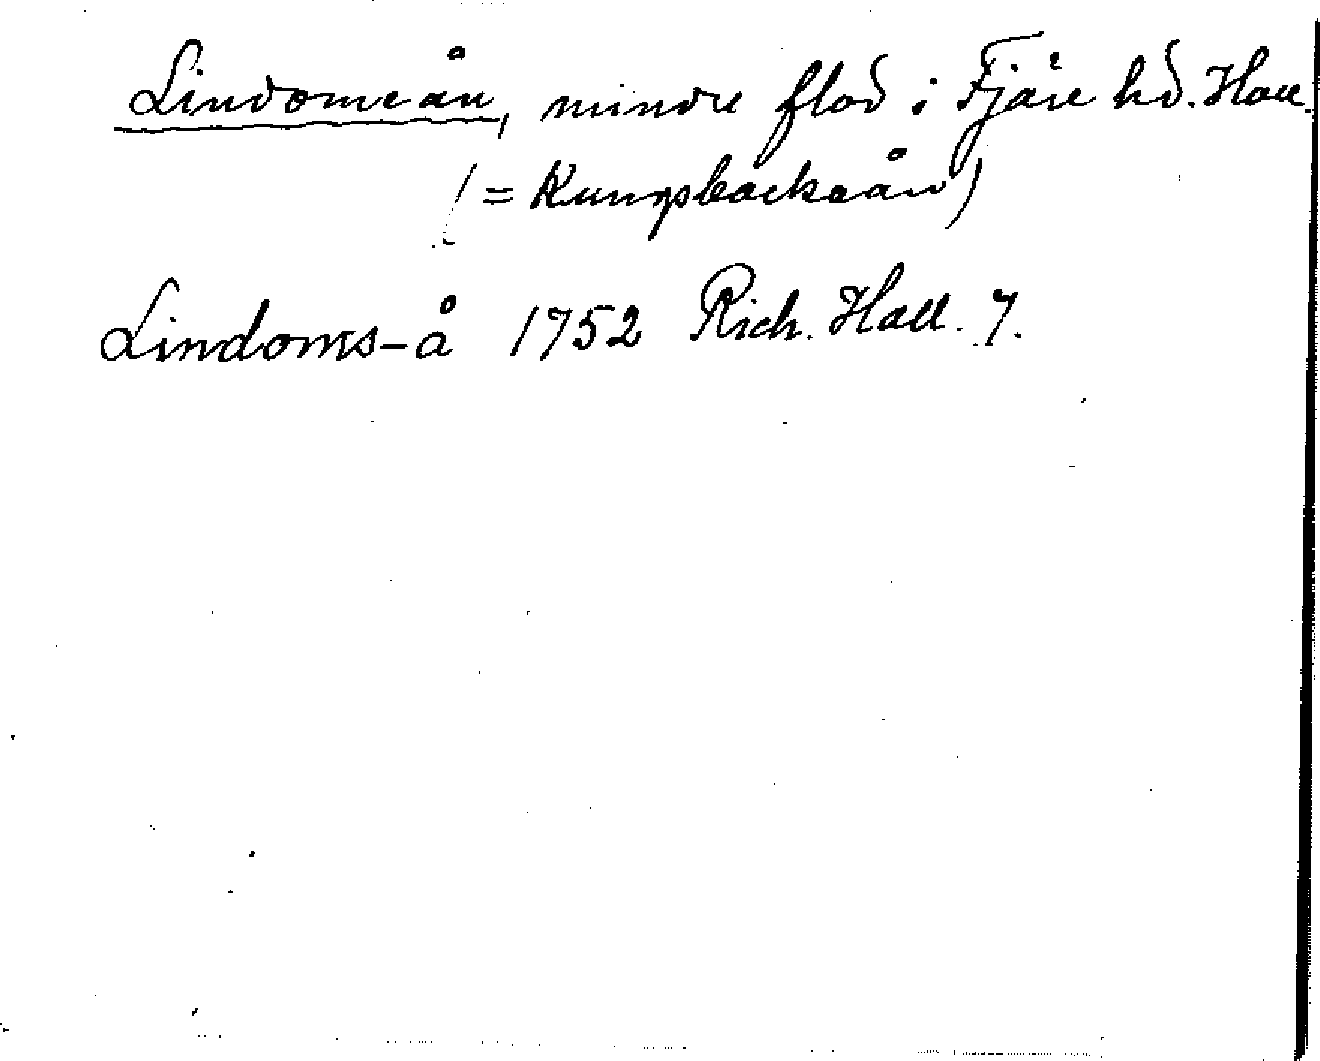 Lindomeån, mindre flod i Fjäre hd. Hall.
(= Kungsbackaån)
Lindoms-å 1752 Rich. Hall. 7.